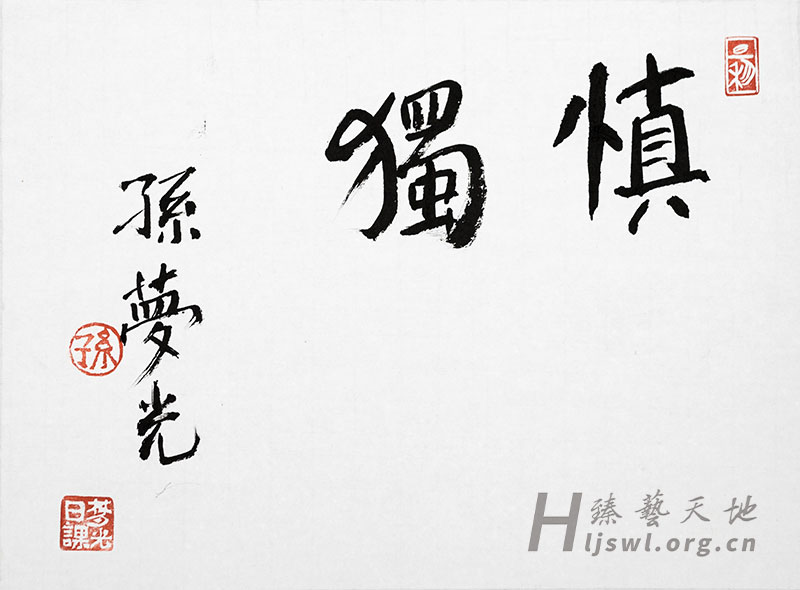 慎獨
孫夢光
孫
夢光日課
臻藝天地
Hljswl.org.cn